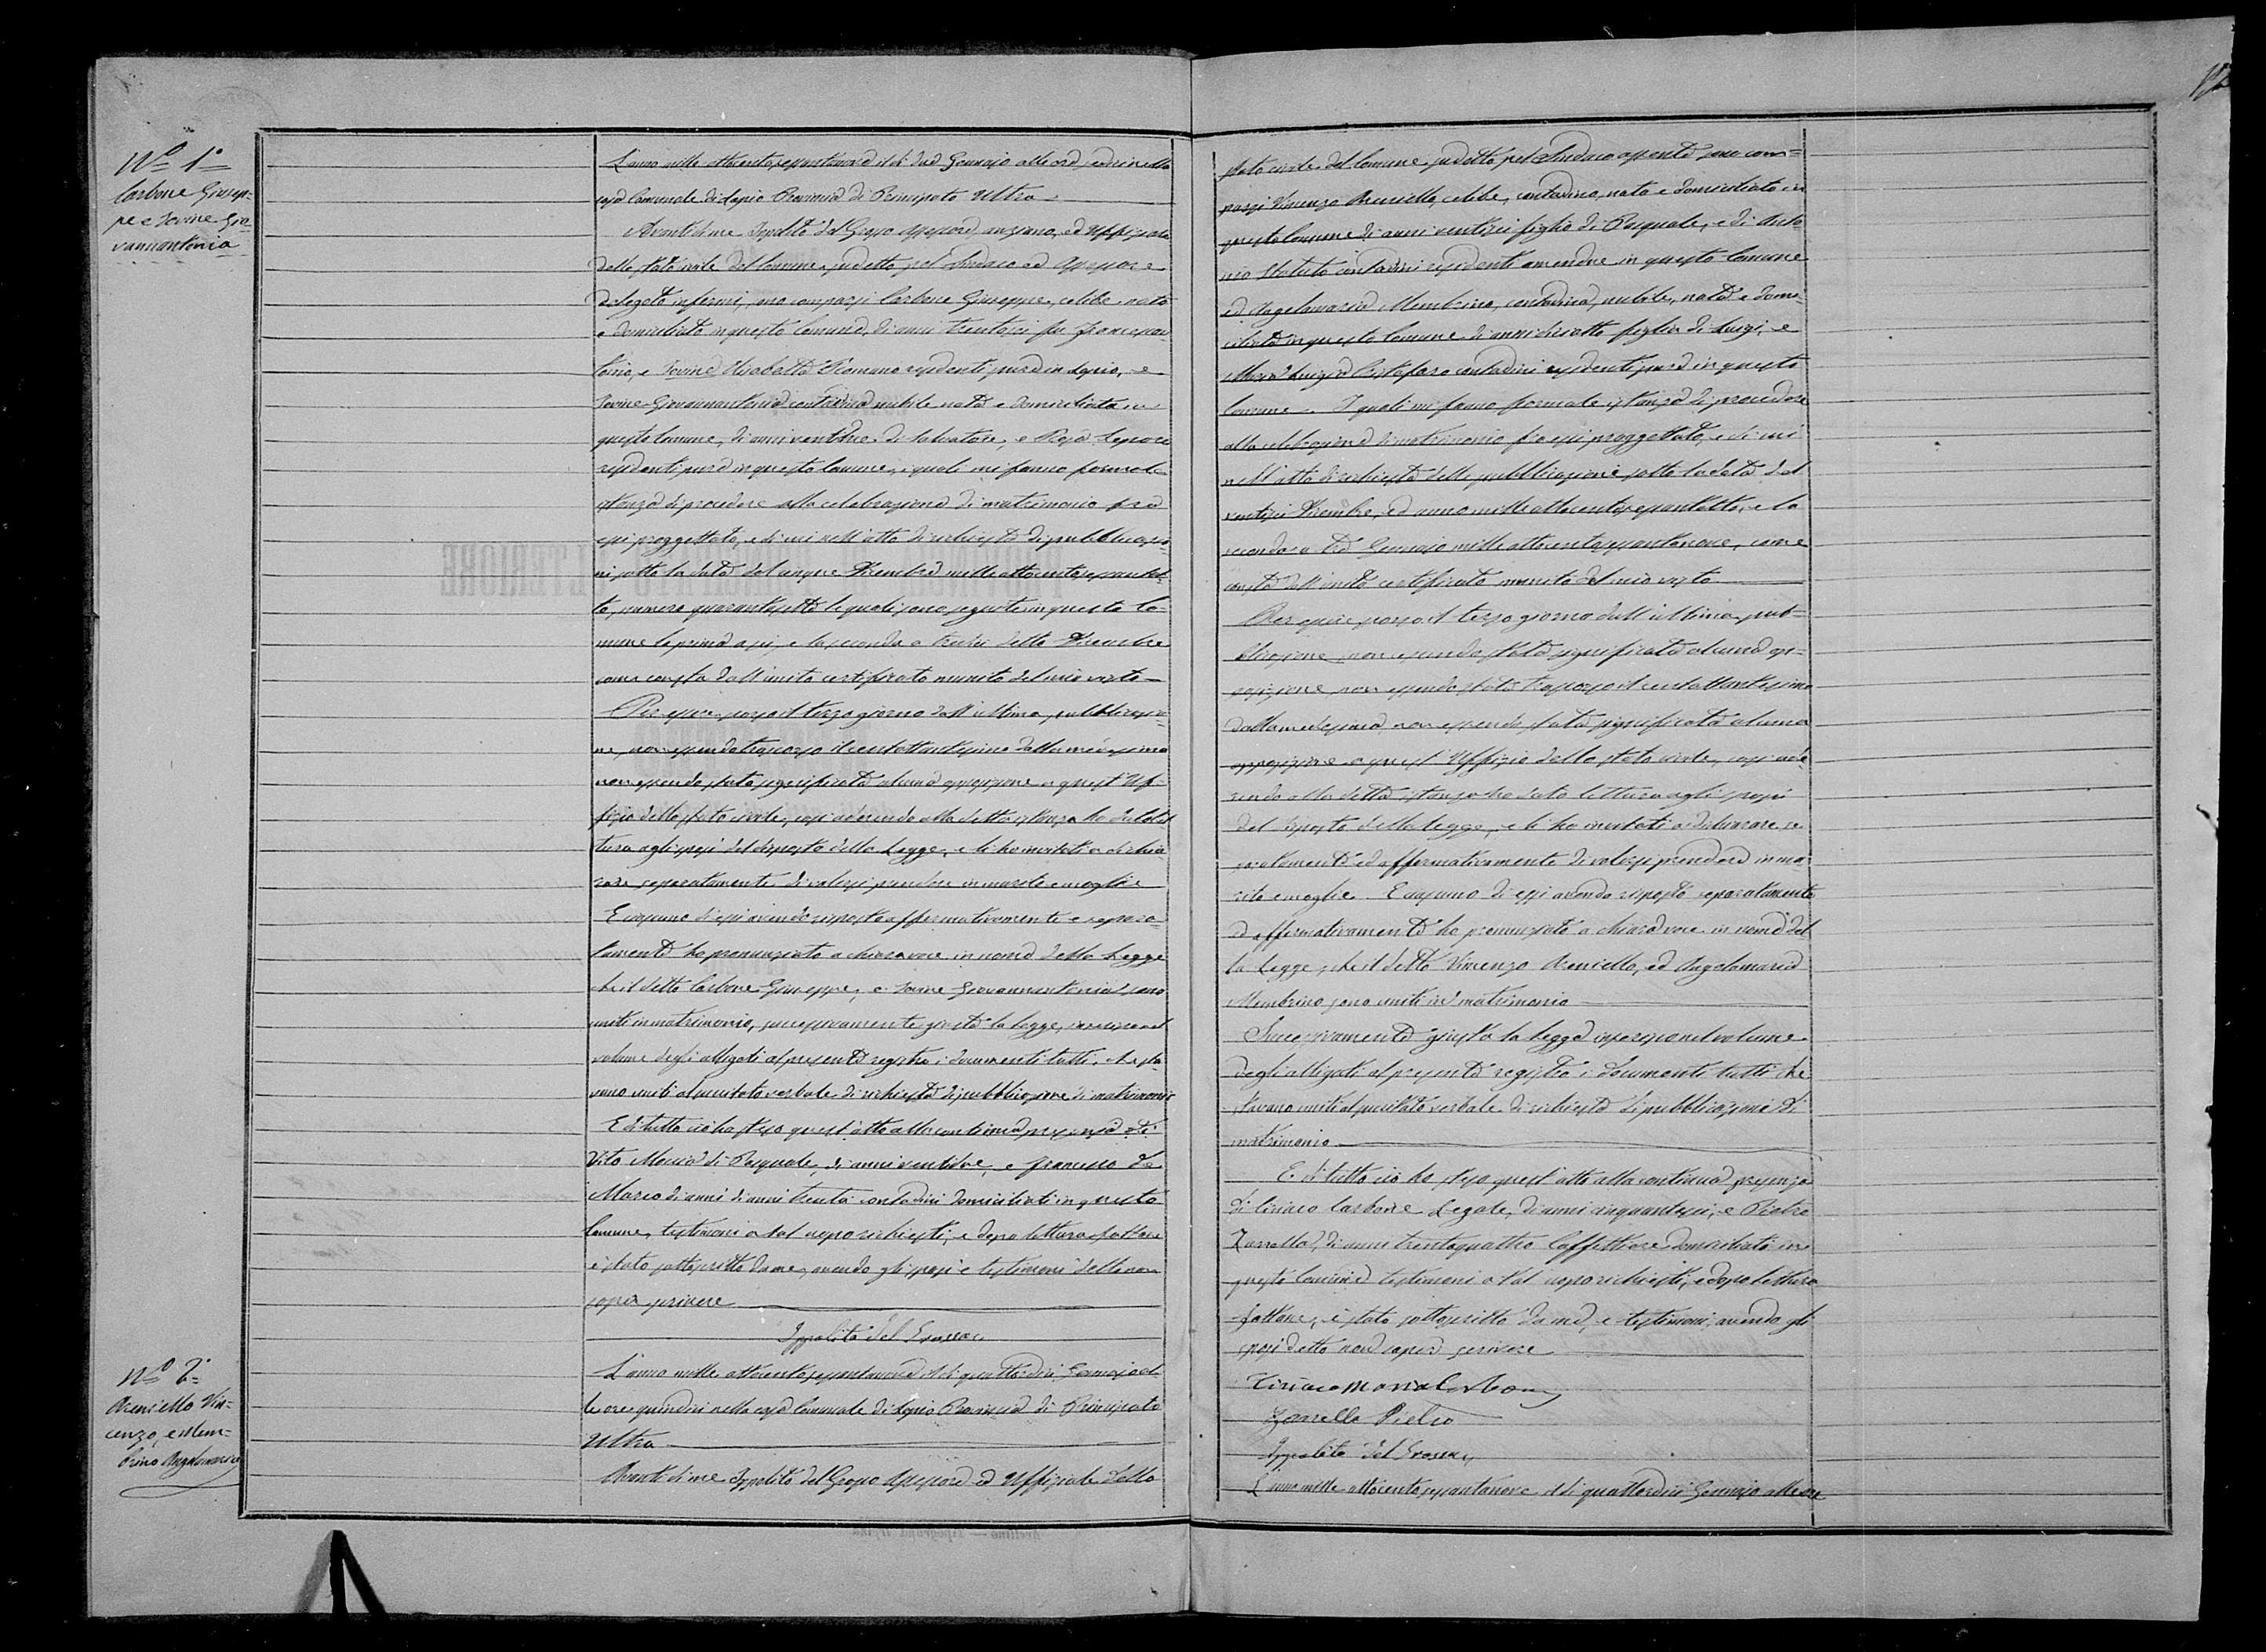 N.o 1.o
Carbone Giusep-
pe e Iovine Gio-
vannantonia
L'anno mille ottocentosessantanove il dì due Gennajo alle ore sedici nella
casa Comunale di Lapio Provincia di Principato Ultra
Avanti di me Ippolito Del Grosso Assessore anziano, ed Uffiziale
dello stato civile del Comune sudetto pel Sindaco ed Assessore
delegato infermi, sono comparsi Carbone Giuseppe, celibe nato
e domiciliato in questo Comune, di anni trentasei fu Francescan-
tonio, e Iovine Elisabetta Romano residenti pure in Lapio, e
Iovine Giovannantonia contadina nubile nata e domiciliata in
questo Comune, di anni ventidue di Salvatore, e Rosa Lepore
residenti pure in questo Comune, i quali mi fanno formale
istanza di procedere alla celebrazione di matrimonio fra
essi proggettato, e di cui nell'atto di richiesta di pubblicazio-
ni sotto la data del cinque Dicembre mille ottocentosessantot-
to, numero quarantasette le quali sono seguite in questo Co-
mune la prima a sei, e la seconda a tredici detto Dicembre
come consta dall'unito certificato munito del mio visto
Per essere scorso il terzo giorno dall'ultima pubblicazio-
ne, non essendo trascorso il centottantesimo dalla medesima
non essendo stata significata alcuna opposizione a quest'Uf-
fizio dello stato civile, così aderendo alla detta istanza ho dato let-
tura agli sposi del disposto della Legge, e li ho invitati a dichia-
rare separatamente di volersi prendere in marito e moglie
E ciascuno di essi avendo risposto affermativamente e separa-
tamente ho pronunziato a chiara voce in nome della Legge
che il detto Carbone Giuseppe, e Iovine Giovannantonia sono
uniti in matrimonio, successivamente giusta la legge, inserisco nel
volume degli alligati al presente registro i documenti tutti, che sta-
vano uniti al precitato verbale di richiesta di pubblicazione di matrimonio
E di tutto ciò ho steso quest'atto alla continua presenza di
Vito Moccia di Pasquale, di anni ventidue, e Francesco De
Marco di anni di anni trenta contadini domiciliati in questo
Comune, testimoni a tal uopo richiesti, e dopo lettura fattane
è stato sottoscritto da me, avendo gli sposi e testimoni detto non
saper scrivere
Ippolito Del Grosso
N.o 2.o
Reniello Vin-
cenzo, e Mem-
brino Angelamaria
L'anno mille ottocentosessantanove il dì quattordici Gennajo al-
le ore quindici nella casa Comunale di Lapio Provincia di Principato
Ultra
Avanti di me Ippolito Del Grosso Assessore ed Uffiziale dello
stato civile del Comune sudetto pel Sindaco assente sono com-
parsi Vincenzo Reniello, celibe, contadino, nato e domiciliato in
questo Comune di anni ventisei figlio di Pasquale, e di Anto-
nia Statuto contadini residenti amendue in questo Comune
ed Angelamaria Membrino, contadina, nubile, nata e domi-
ciliata in questo Comune di anni dieciotto figlia di Luigi, e
Maria Luigia contadini residenti pure in questo
Comune. I quali mi fanno formale istanza di procedere
alla celebrazione di matrimonio fra essi proggettato, e di cui
nell'atto di richiesta delle pubblicazioni sotto la data del
ventisei Dicembre, ed anno mille ottocentosessantotto, e la
seconda a tre Gennajo mille ottocentosessantanove, come
consta dall'unito certificato munito del mio visto
Per essere scorso il terzo giorno dall'ultima pub-
blicazione, non essendo stata significata alcuna op-
posizione non essendo stato trascorso il centottantesimo
dalla medesima non essendo stata significata alcuna
opposizione a quest'Uffizio dello stato civile, così ade-
rendo alla detta istanza ho dato lettura agli sposi
del disposto della legge, e li ho invitati a dichiarare se-
paratamente ed affermativamente di volersi prendere in ma-
rito e moglie. E ciascuno di essi avendo risposto separatamente
ed affermativamente ho pronunziato a chiara voce in nome del-
la Legge, che il detto Vincenzo Reniello, ed Angelamaria
Membrino sono uniti in matrimonio
Successivamente giusta la legge inserisco nel volume
degli alligati al presente registro i documenti tutti che
stavano uniti al precitato verbale di richiesta di pubblicazione di
matrimonio
E di tutto ciò ho steso quest'atto alla continua presenza
di Ciriaco Carbone Legale, di anni cinquantasei, e Pietro
Zarrella, di anni trentaquattro Caffettiere domiciliati in
questo Comune testimoni a tal uopo richiesti, e dopo lettura
fattane, è stato sottoscritto da me, e testimoni, avendo gli
sposi detto non saper scrivere
Ciriaco Maria Carbone
Zarrella Pietro
Ippolito Del Grosso
L'anno mille ottocentosessantanove il dì quattordici Gennajo alle ore